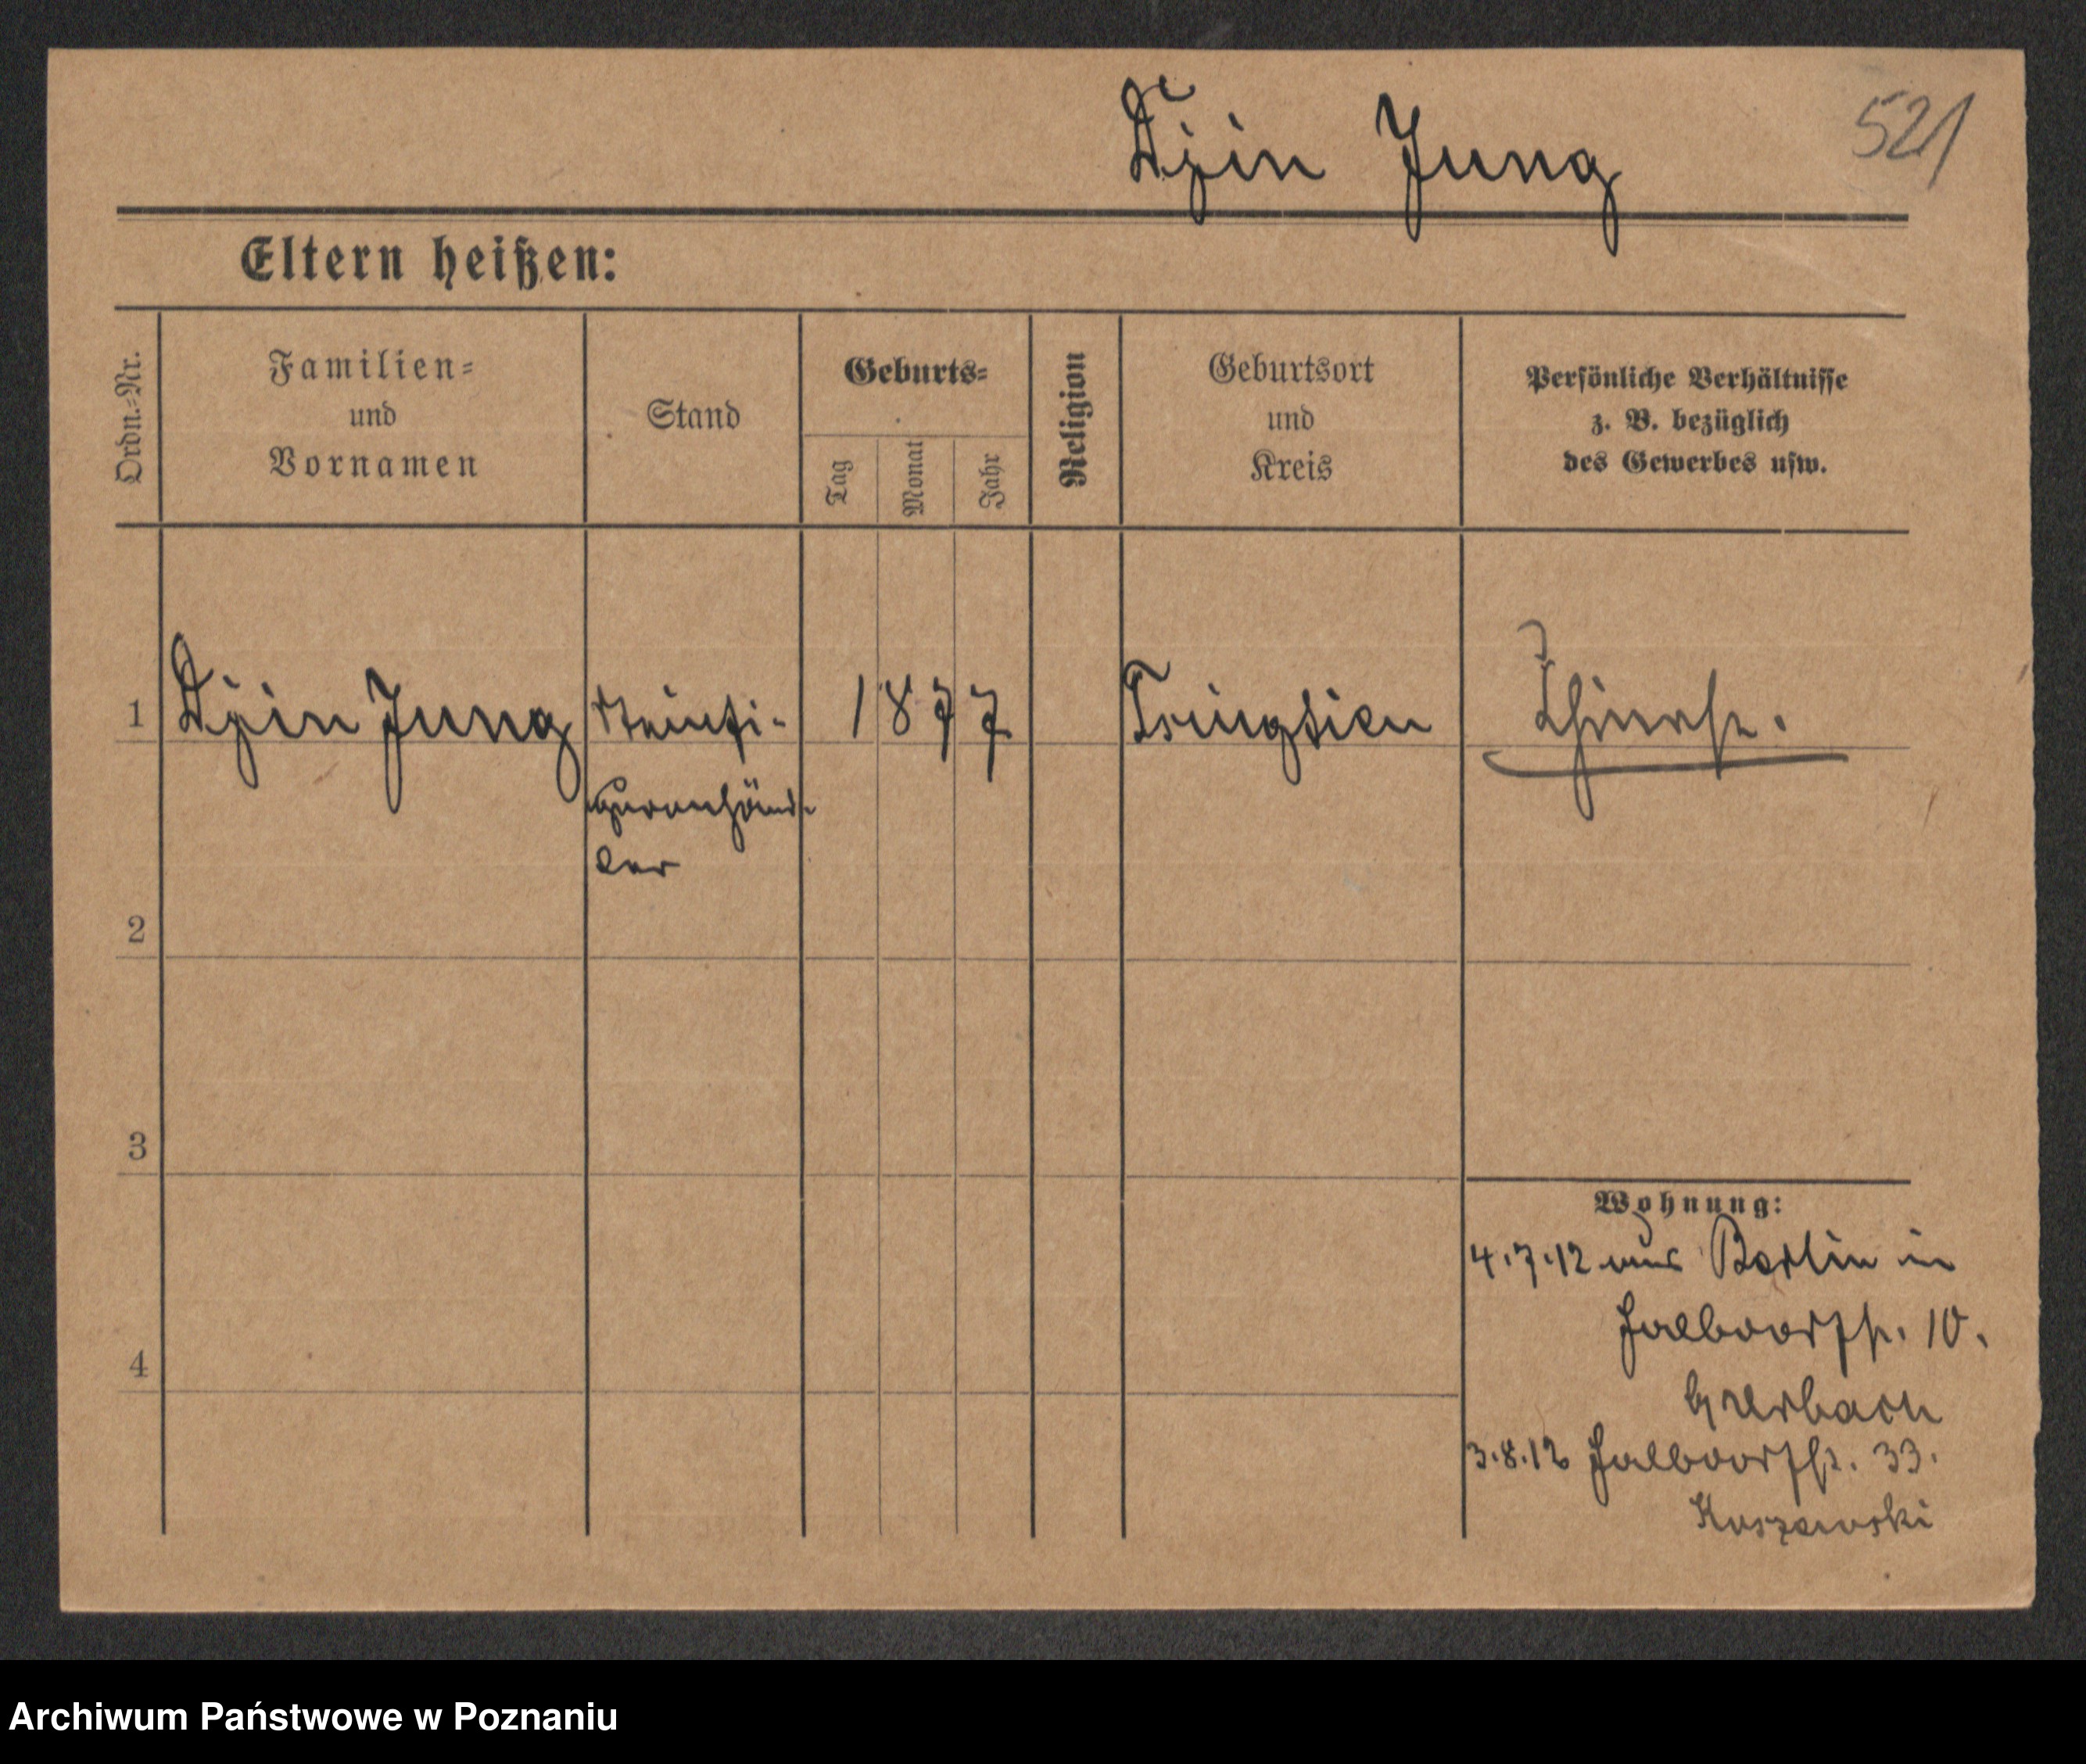 Djin Jung
521
Eltern heißen:
Ordn.-Nr.
Familien-
und
Vornamen
Stand
Geburts-
Tag
Monat
Jahr
Religion
Geburtsort
und
Kreis
Persönliche Verhältnisse
z. B. bezüglich
des Gewerbes usw.
1 Djin Jung Steinfi- 1877 Tsingtien Chinese.
gurenhänd-
ler
2
3
4
Wohnung:
4.7.12 aus Berlin in
Halbdorfstr. 10.
3.8.12 Halbdorfstr. 33.
Archiwum Państwowe w Poznaniu